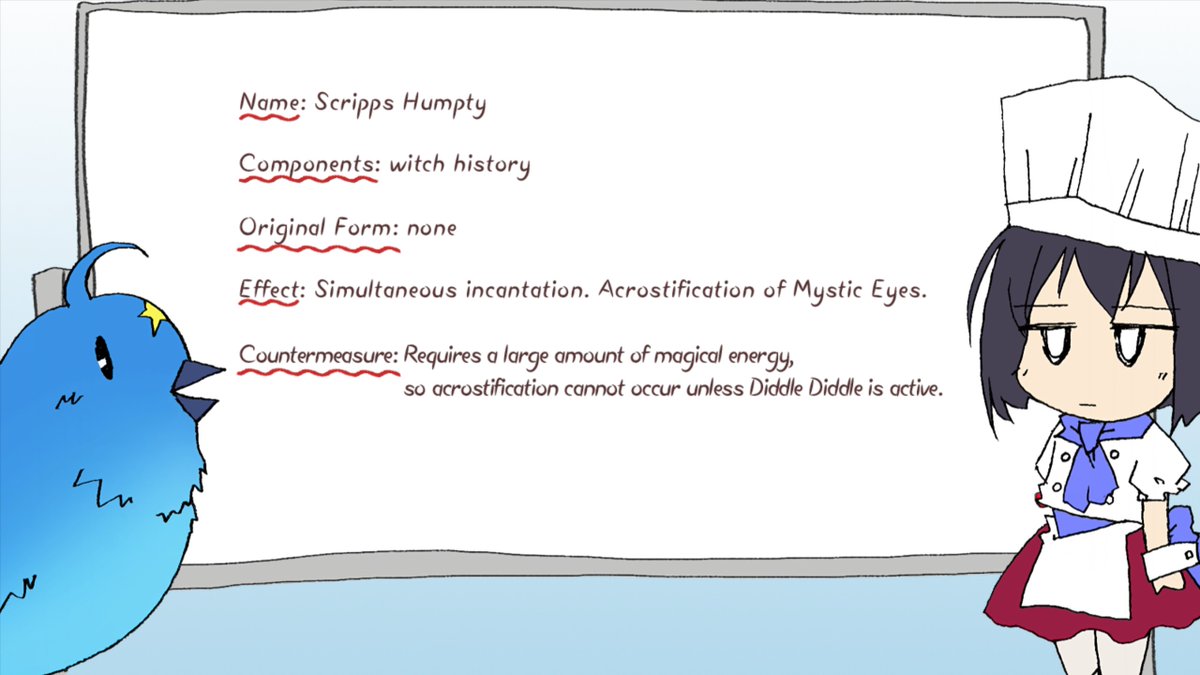 Name: Scripps Humpty
Components: witch history
Original Form: none
Effect: Simultaneous incantation. Acrostification of Mystic Eyes.
Countermeasure: Requires a large amount of magical energy,
so acrostification cannot occur unless Diddle Diddle is active.